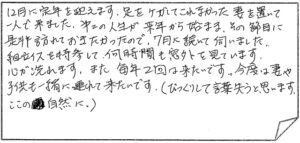 12月に定年を迎えます。足をケガしてこれなかった妻を置いて
一人で来ました。次の人生が来年から始まる、その節目に
是非訪れておきたかったので、7月に続いて伺いました。
組立イスを持参して何時間も窓外を見ています。
心が洗れます。また毎年2回は来たいです。今度は妻や
子供も一緒に連れて来たいです。(びっくりして言葉失うと思います。
ここの自然に。)